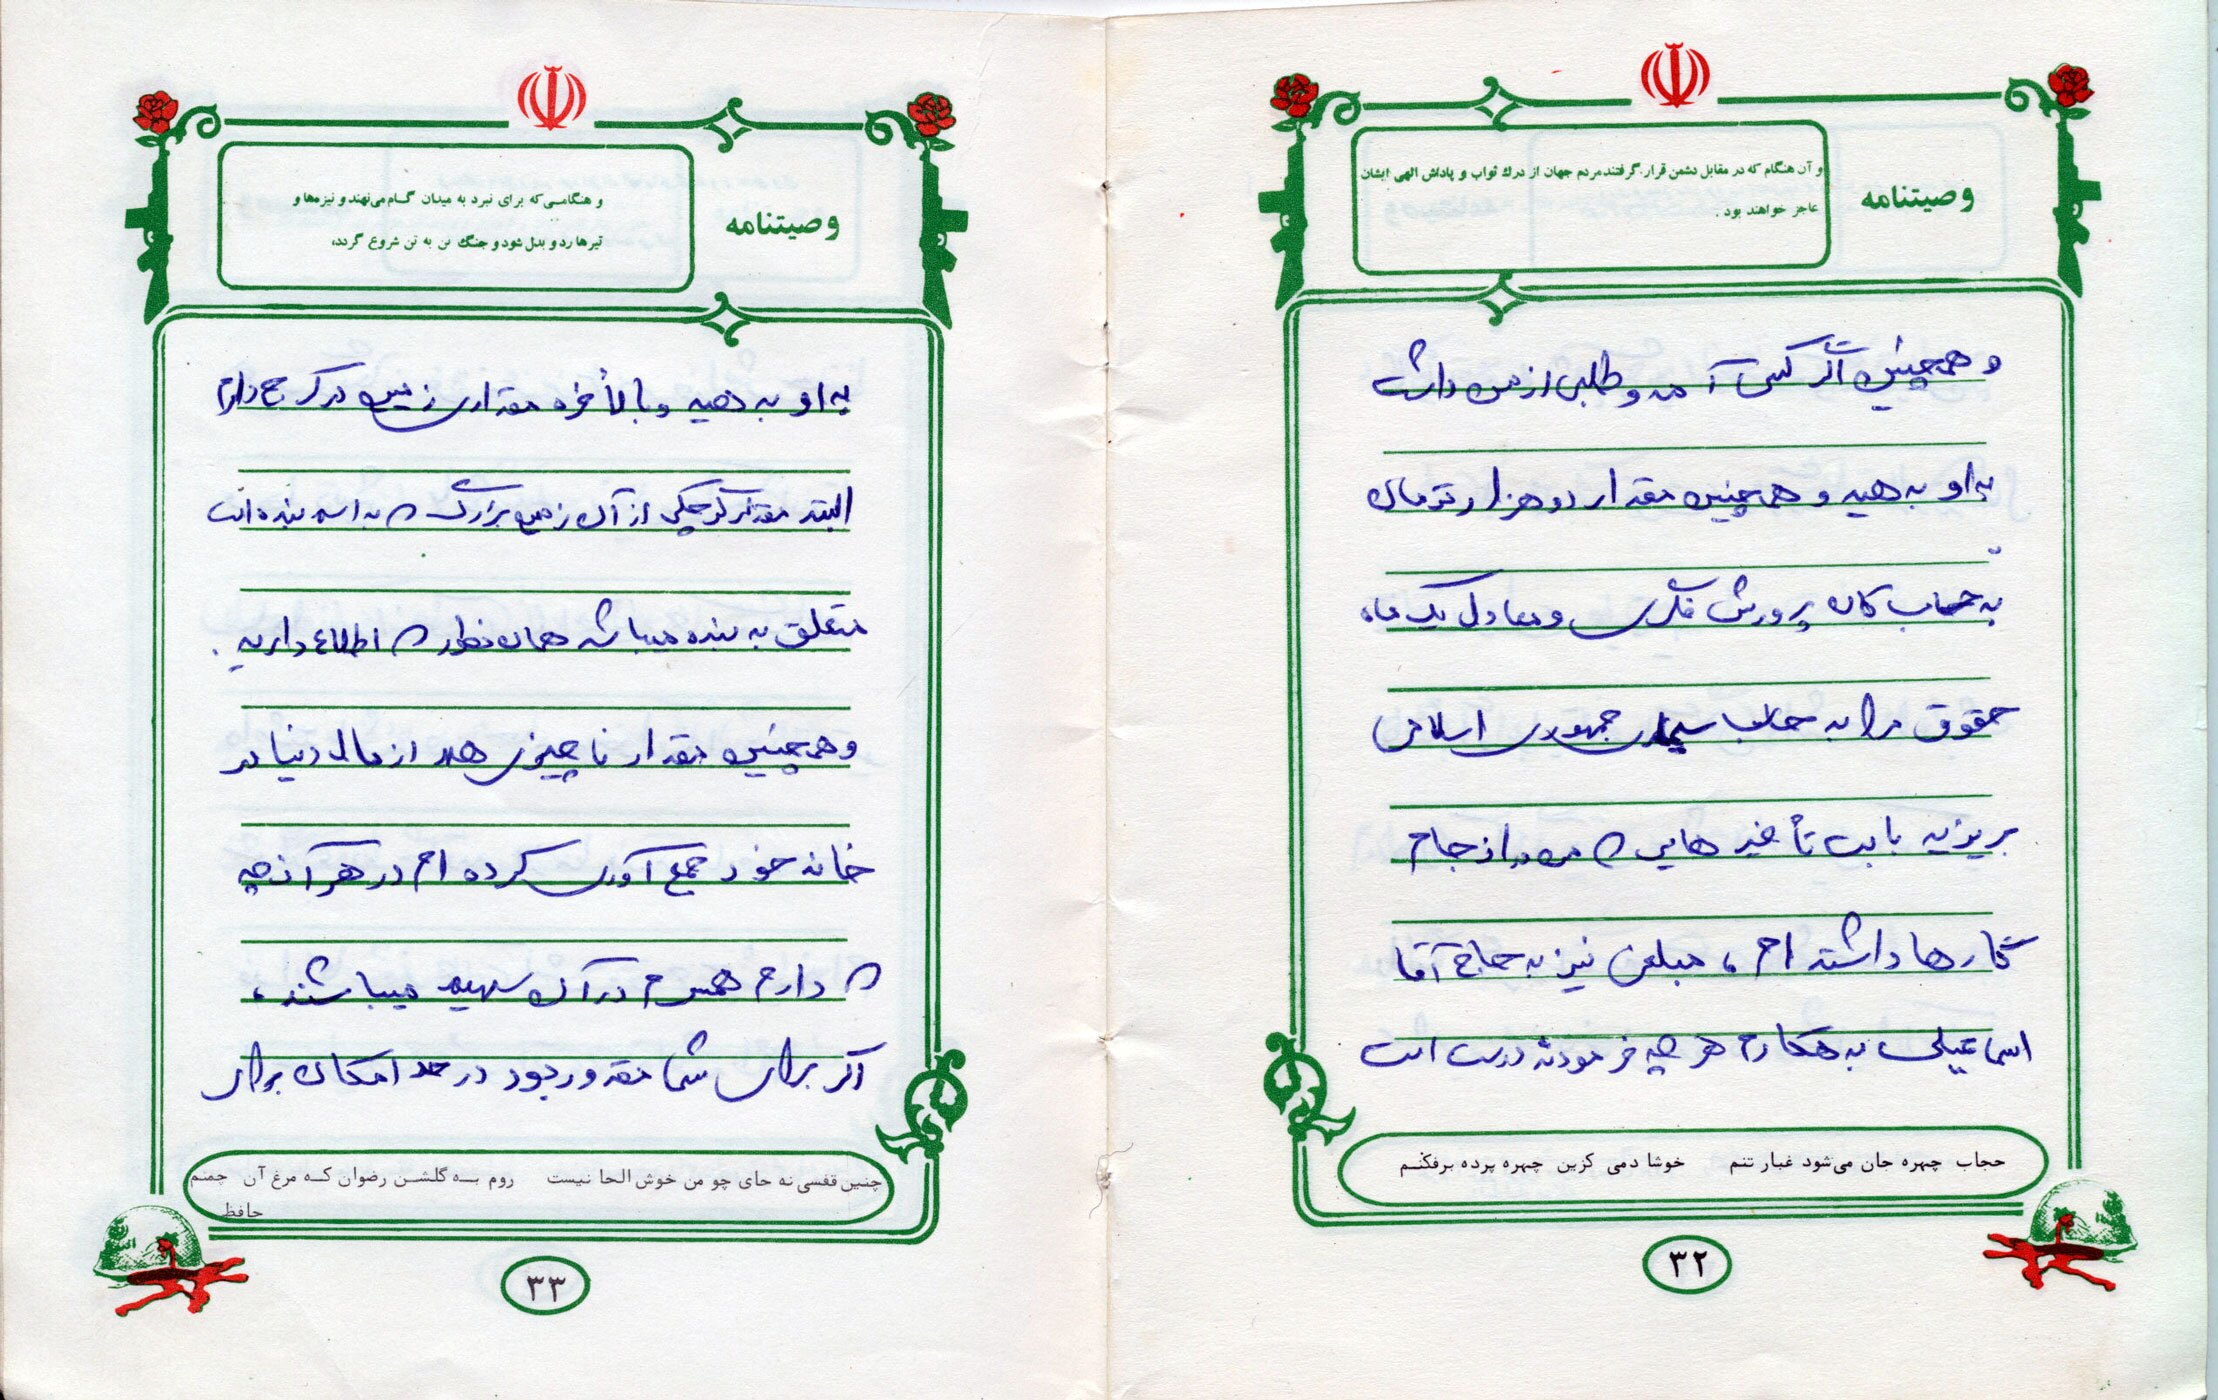 و آن هنگام که در مقابل دشمن قرار گرفتند مردم جهان از درك ثواب و پاداش الهی ایشان
عاجز خواهند بود .
وصیتنامه
و همچنین اگر کسی آمد و طلبی از من داشت
به او به دهید و همچنین مقدار دو هزار تومان
به حساب کانون پرورش فکری و معادل یک ماه
حقوق مرا به حساب سیمای جمهوری اسلامی
بریزید بابت تأخیر هایی که من در انجام
کارها داشته ام ، مبلغی نیز به حاج آقا
اسماعیلی به هکارم هر چه فرمودند درست است
حجاب چهره جان می‌شود غبار تنم خوشا دمی کزین چهره پرده برفکنم
۳۲
و هنگامی که برای نبرد به میدان گام می‌نهند و نیزه‌ها و
تیرها رد و بدل شود و جنگ تن به تن شروع گردد،
وصیتنامه
به او به دهید و بالأخره مقداری زمین در کرج دارم
البته مقدار کوچکی از آن زمین بزرگ که به اسم بنده است
متعلق به بنده میباشد همان طور که اطلاع دارید .
و همچنین مقدار ناچیزی هم از مال دنیا در
خانه خود جمع آوری کرده ام در هر آنچه
که دارم همسرم در آن سهیم میباشند ،
اگر برای شما مقدور بود در حد امکان برای
چنین قفسی نه جای چو من خوش الحا نیست روم بــه گلشن رضوان کــه مرغ آن چمنم
حافظ
۳۳